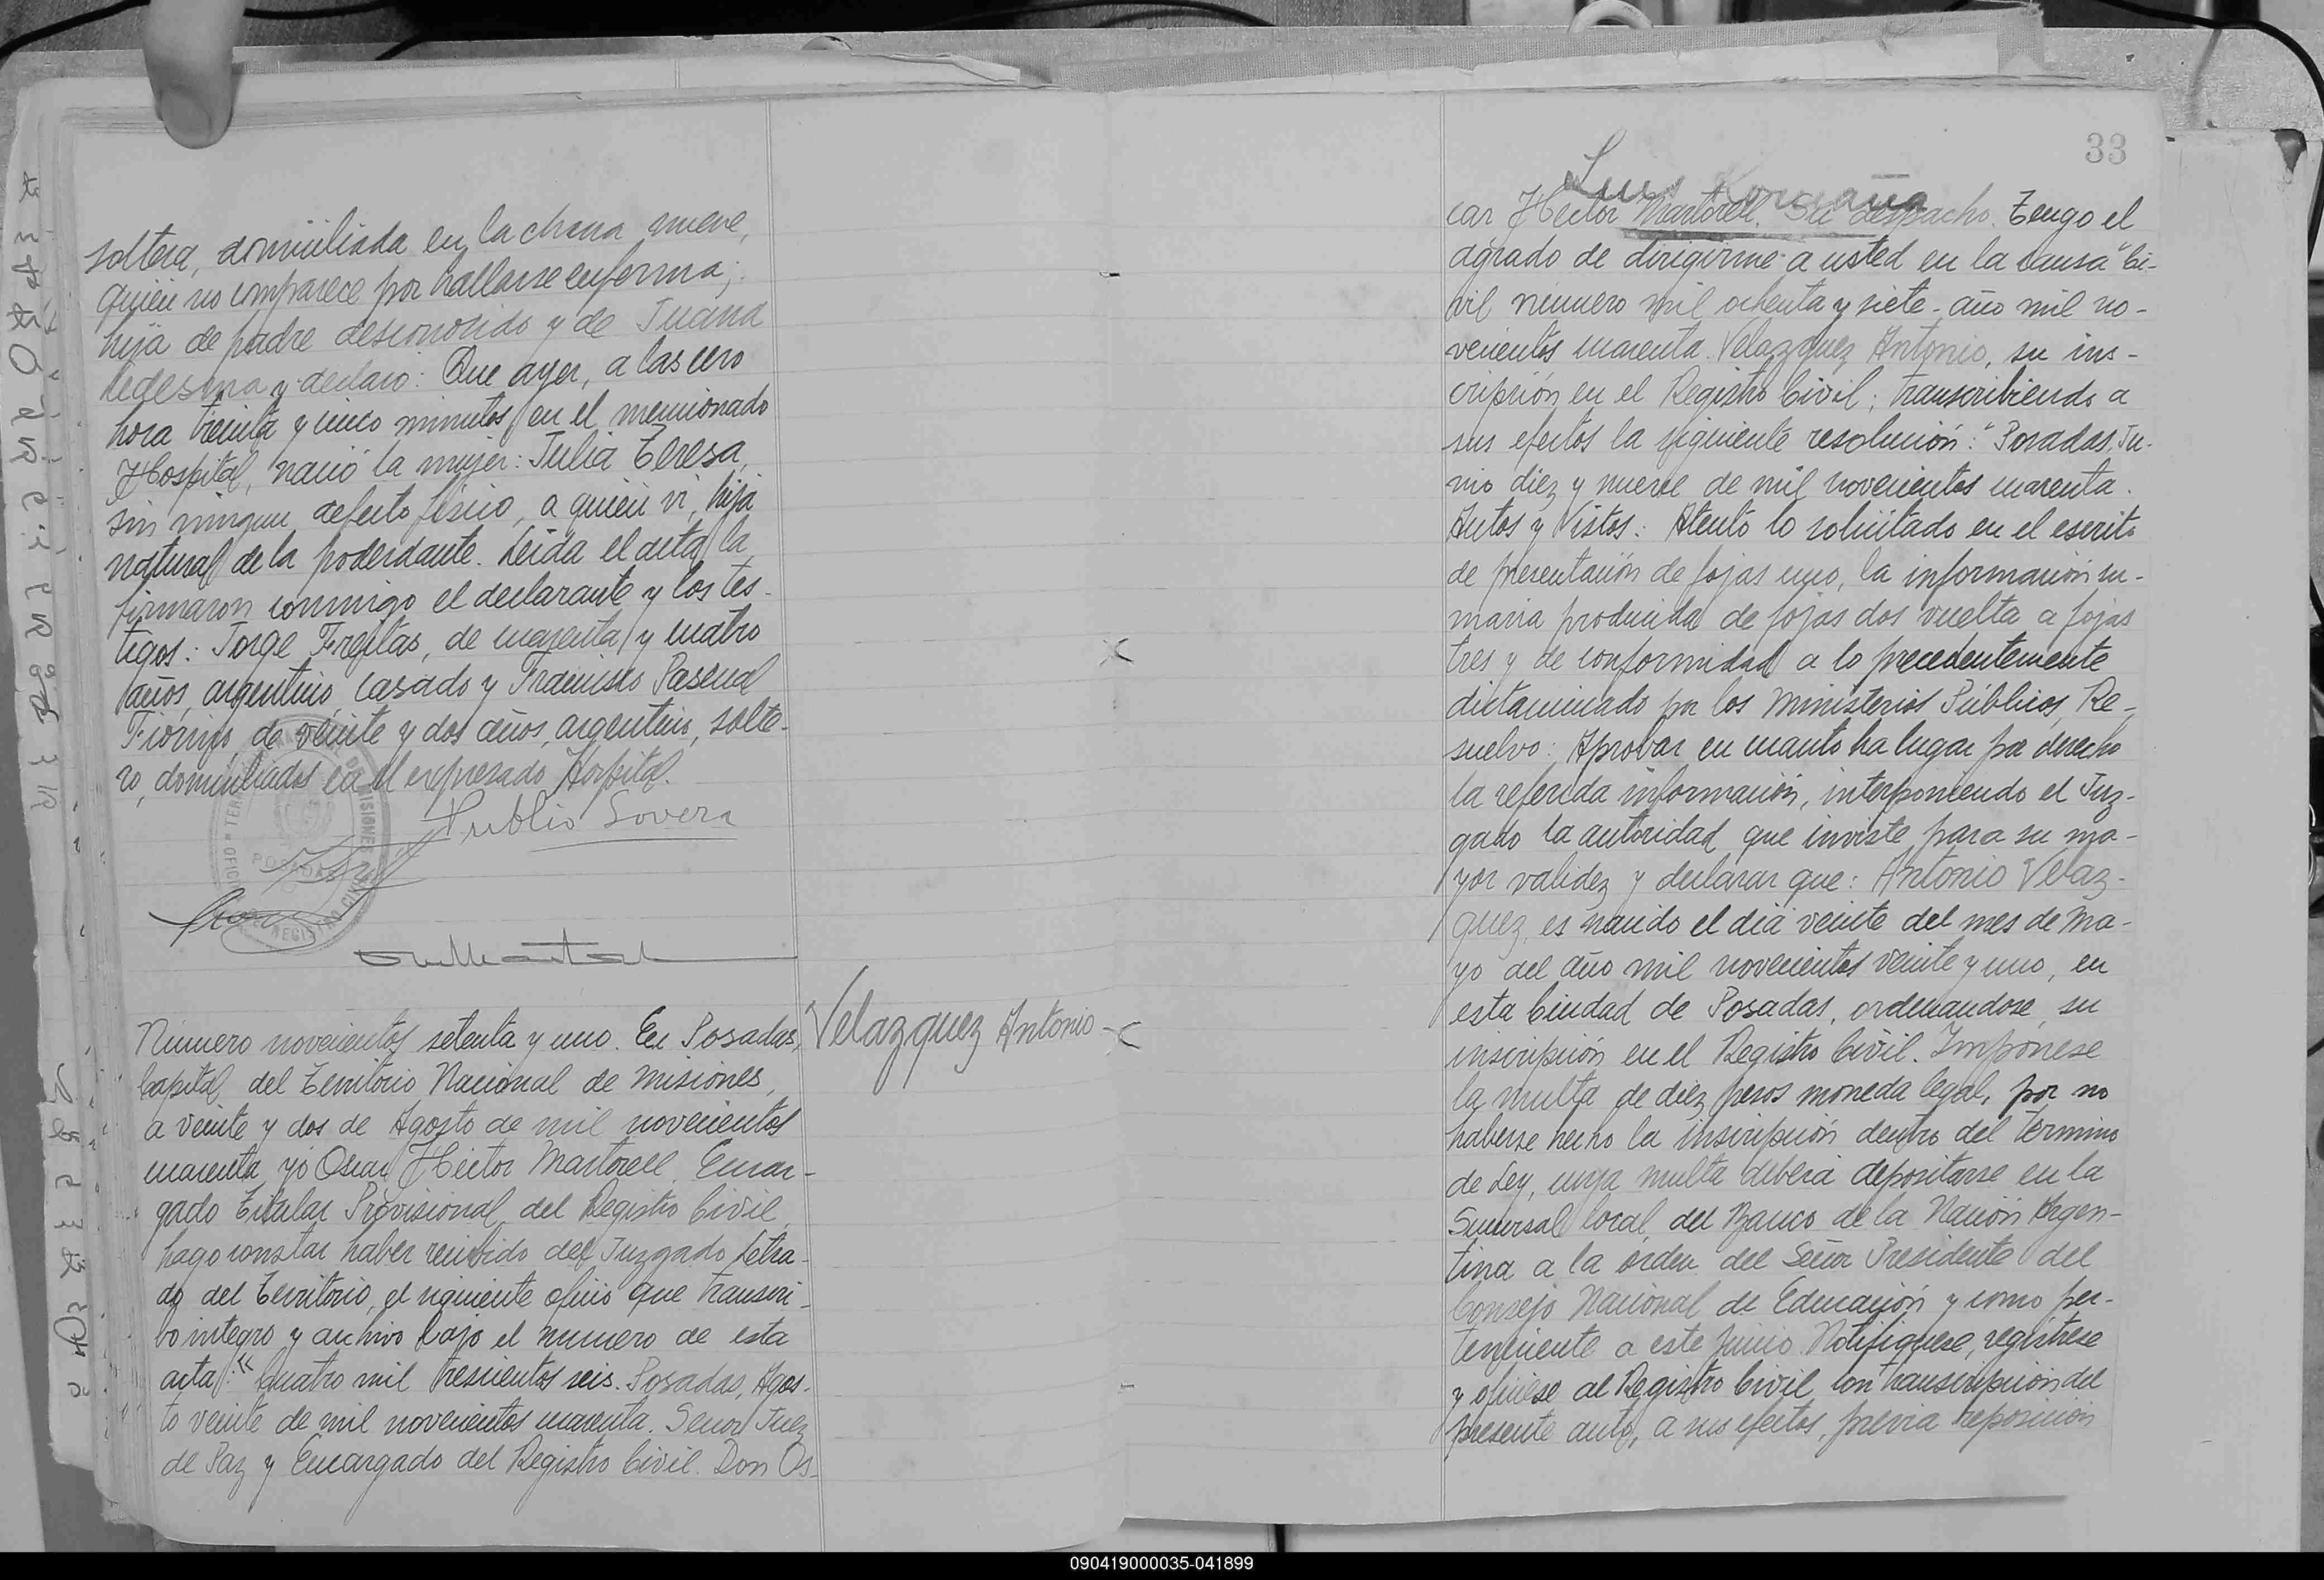 soltera, domiciliada en la chacra nueve,
quien no comparece por hallarse enferma;
hija de padre desconocido y de Juana
Ledesma y declaró: Que ayer, a las cero
hora treinta y cinco minutos, en el mencionado
Hospital, nació la mujer: Julia Teresa,
sin ningun defecto físico, a quien vi, hija
natural de la poderdante. Leida el acta, la
firmaron conmigo el declarante y los tes-
tigos: Jorge Freitas, de cuarenta y cuatro
años, argentino, casado y Francisco Pascual
de veinte y dos años, argentino, solte-
ro, domiciliados en el expresado Hospital.
Publio Lovera
Numero novecientos setenta y uno. En Posadas,
Velazquez Antonio
Capital del Territorio Nacional de Misiones,
a veinte y dos de Agosto de mil novecientos
cuarenta yó Oscar Héctor Martorell, Encar-
gado Titular Provisional del Registro Civil,
hago constar haber recibido del Juzgado Letra-
do del Territorio, el siguiente oficio que transcri-
bo integro y archivo bajo el numero de esta
acta: "Cuatro mil trescientos seis. Posadas, Agos-
to veinte de mil novecientos cuarenta. Señor Juez
de Paz y Encargado del Registro Civil. Don Os-
33
Luis
car Héctor Martorell. Su despacho. Tengo el
agrado de dirigirme a usted en la causa "Ci-
vil número mil ochenta y siete - año mil no-
vecientos cuarenta. Velazquez Antonio, su ins-
cripción en el Registro Civil; transcribiendo a
sus efectos la siguiente resolución: "Posadas, Ju-
nio diez y nueve de mil novecientos cuarenta.
Autos y Vistos: Atento lo solicitado en el escrito
de presentación de fojas uno, la información su-
maria producida de fojas dos vuelta a fojas
tres y de conformidad a lo precedentemente
dictaminado por los Ministerios Públicos, Re-
suelvo: Aprobar en cuanto ha lugar por derecho
la referida información, interponiendo el Juz-
gado la autoridad que inviste para su ma-
yor validez y declarar que: Antonio Velaz-
quez, es nacido el dia veinte del mes de Ma-
yo del año mil novecientos veinte y uno, en
esta Ciudad de Posadas, ordenandose su
inscripción en el Registro Civil. Impónese
la multa de diez pesos moneda legal, por no
haberse hecho la inscripción dentro del término
de Ley, cuya multa deberá depositarse en la
Sucursal local del Banco de la Nación Argen-
tina a la orden del Señor Presidente del
Consejo Nacional de Educación y como per-
teneciente a este juicio. Notifíquese, regístrese
y ofíciese al Registro Civil con transcripción del
presente auto, a sus efectos, previa reposición
090419000035-041899